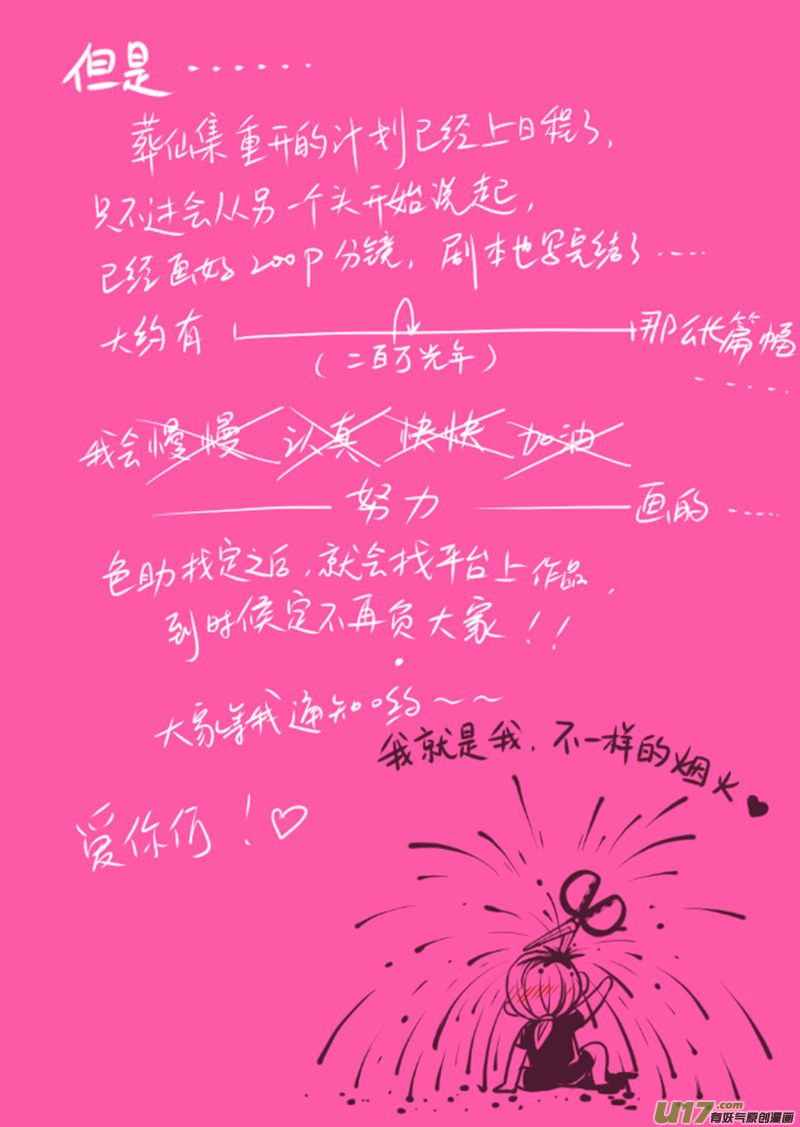 但是······
葬仙集重开的计划已经上日程了,
只不过会从另一个头开始说起,
已经画好200P分镜,剧本也写完结了·····
大约有 那么长篇幅
(二百万光年)
·····
我会慢慢 认真 快快 加油
努力 画的·····
色助找定之后,就会找平台上作品,
到时候定不再负大家!!
大家等我通知哟~~
我就是我,不一样的烟火♥
爱你们!♡
U17.com
有妖气原创漫画